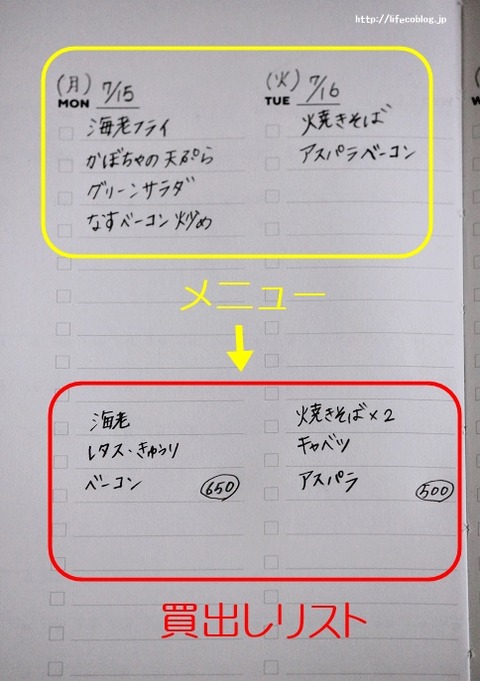 http://lifecoblog.jp
(月) 7/15
MON
海老フライ
かぼちゃの天ぷら
グリーンサラダ
なすベーコン炒め
(火) 7/16
TUE
焼きそば
アスパラベーコン
メニュー
海老
レタス・きゅうり
ベーコン 650
焼きそば×2
キャベツ
アスパラ 500
買出しリスト